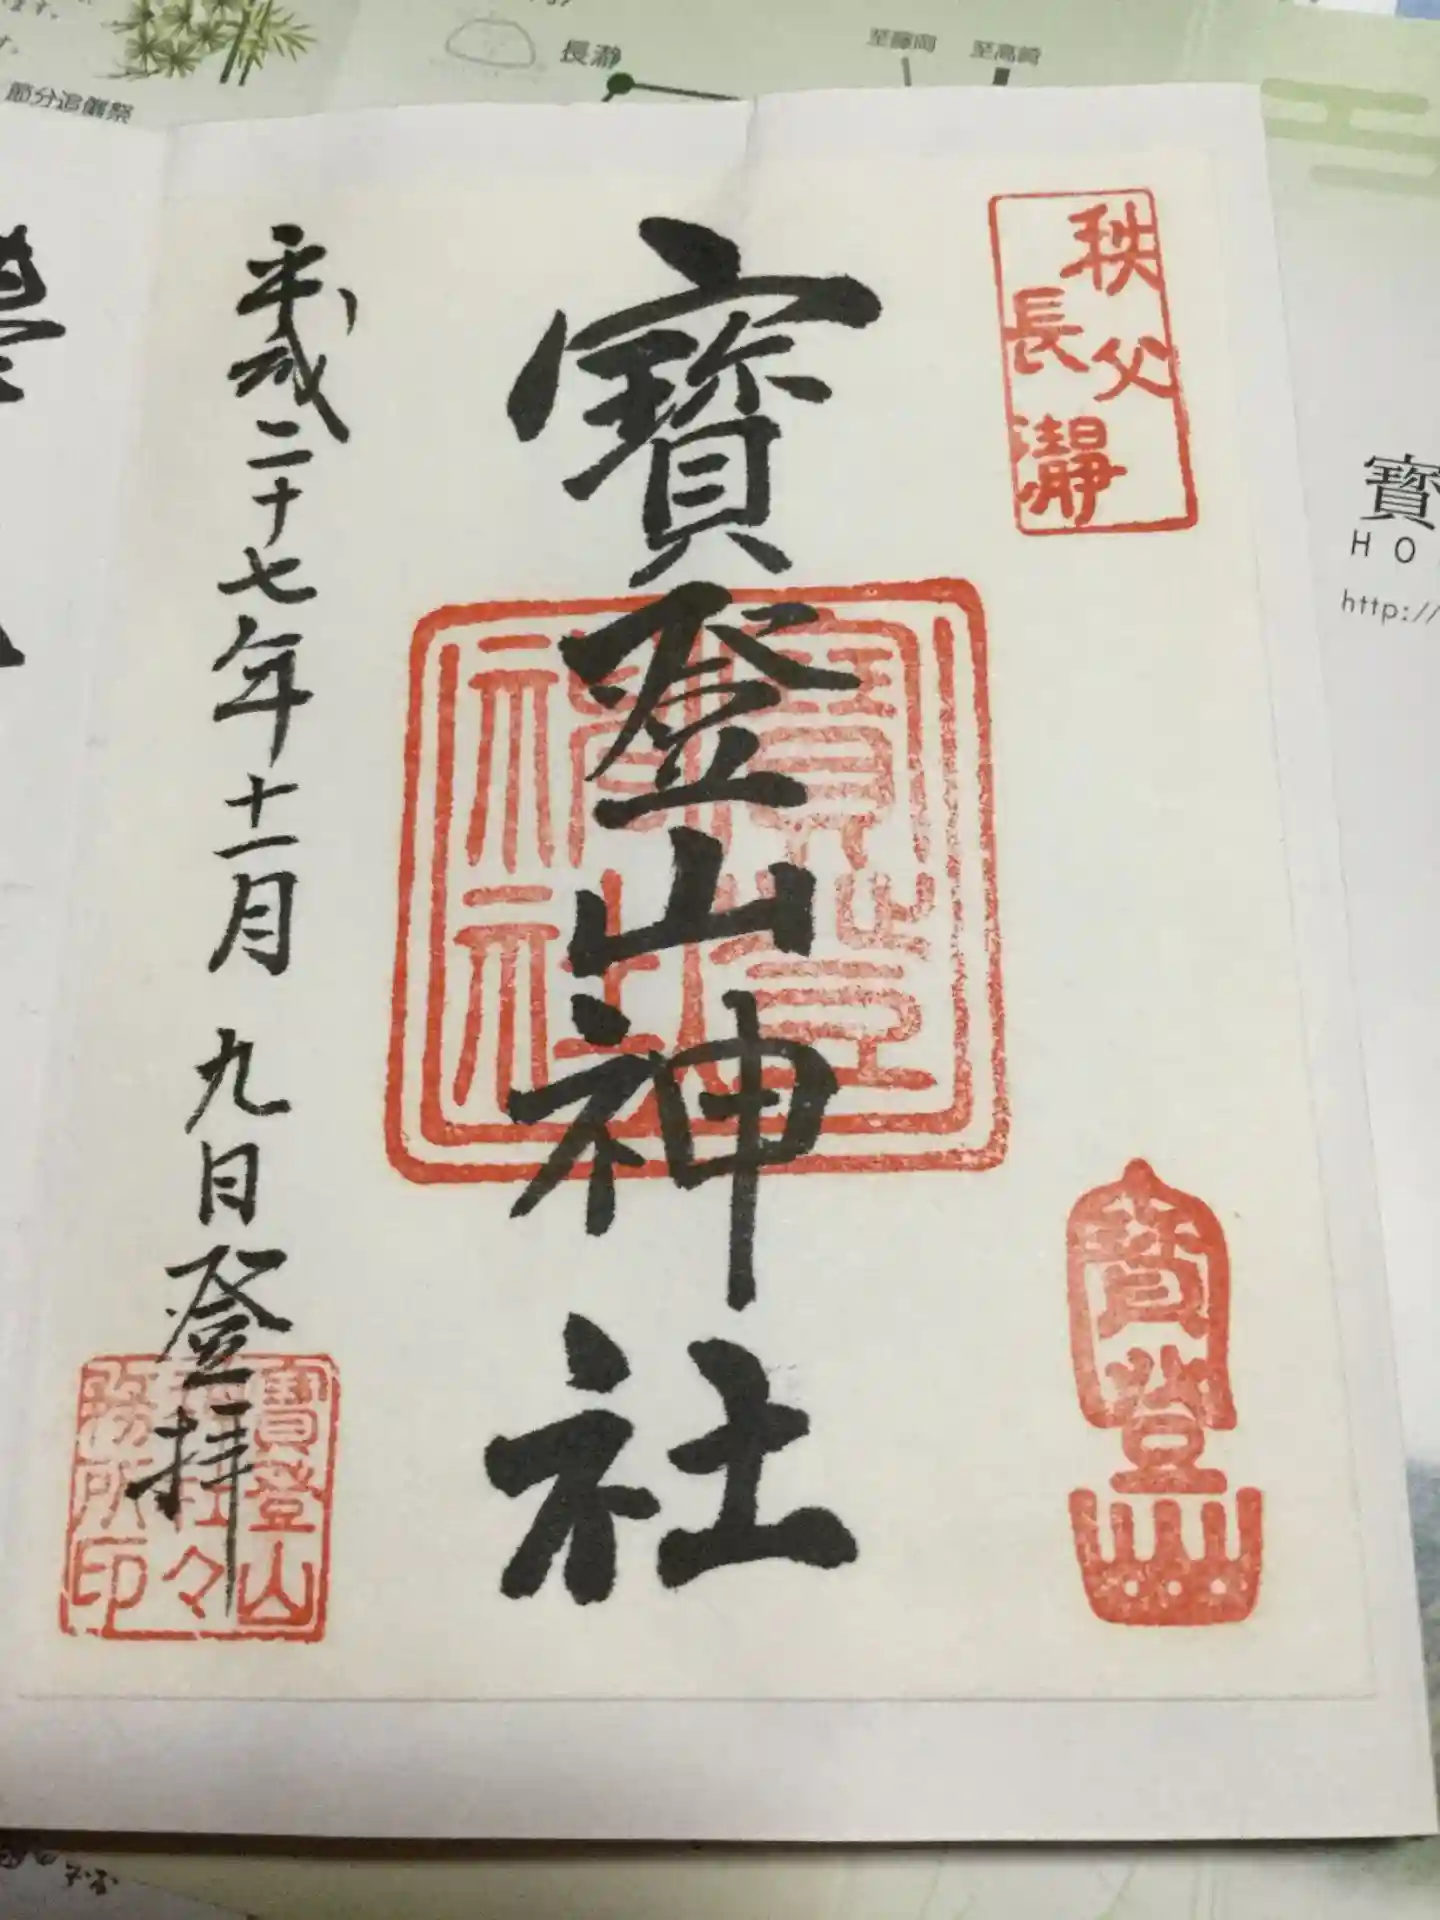 節分追儺祭
長瀞
至藤岡
至高崎
秩父
長瀞
寶登山神社
平成二十七年十一月九日登拝
寶登山
神社
寶登
寶登山
神社々
務所印
寶
HO
http://